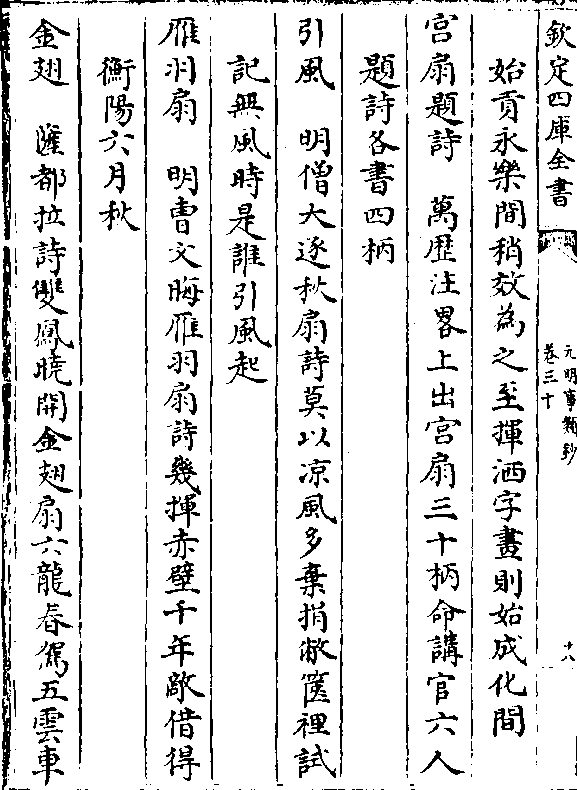 欽定四庫全書
元明事類鈔
卷三十
十八
始貢永樂間稍效為之至揮洒字畫則始成化間
宮扇題詩　萬歷注畧上出宮扇三十柄命講官六人
題詩各書四柄
引風　明僧大遂秋扇詩莫以凉風多棄捐敝篋裡試
記無風時是誰引風起
雁羽扇　明曹文晦雁羽扇詩幾揮赤壁千年敵借得
衡陽六月秋
金翅　薩都拉詩雙鳳曉開金翅扇六龍春駕五雲車